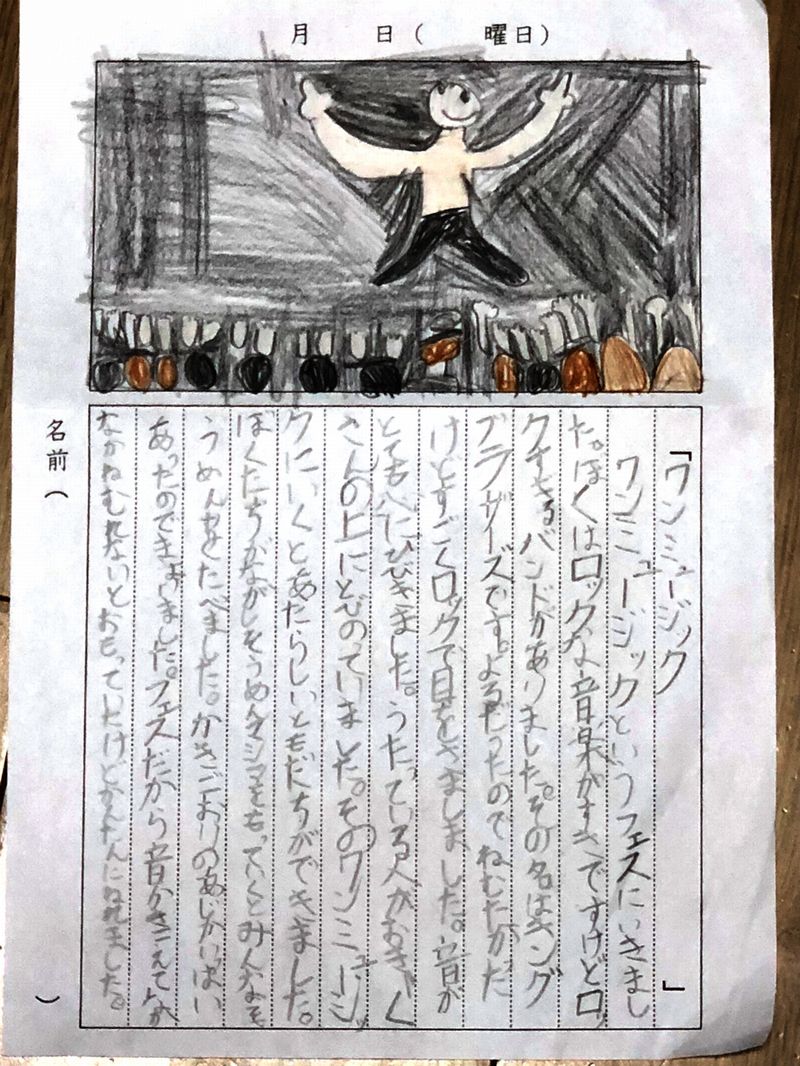 月　日（　曜日）
「ワンミュージック」
ワンミュージックというフェスにいきまし
た。ぼくはロックな音楽がすきですけどロッ
クすぎるバンドがありました。その名はキング
ブラザーズです。よるだったのでねむたかった
けどすごくロックで目をさましました。音が
とてもへにひびきました。うたっている人がおきゃく
さんの上にとびのっていました。そのワンミュージッ
クにいくとあたらしいともだちができました。
ぼくたちがながしそうめんをもっていくとみんなそ
うめんをたべました。かきごおりのあじがいっぱい
あったのでました。フェスだから音がきこえてなか
なかねむれないとおもってたけどかんたんにねれました。
名前（　）